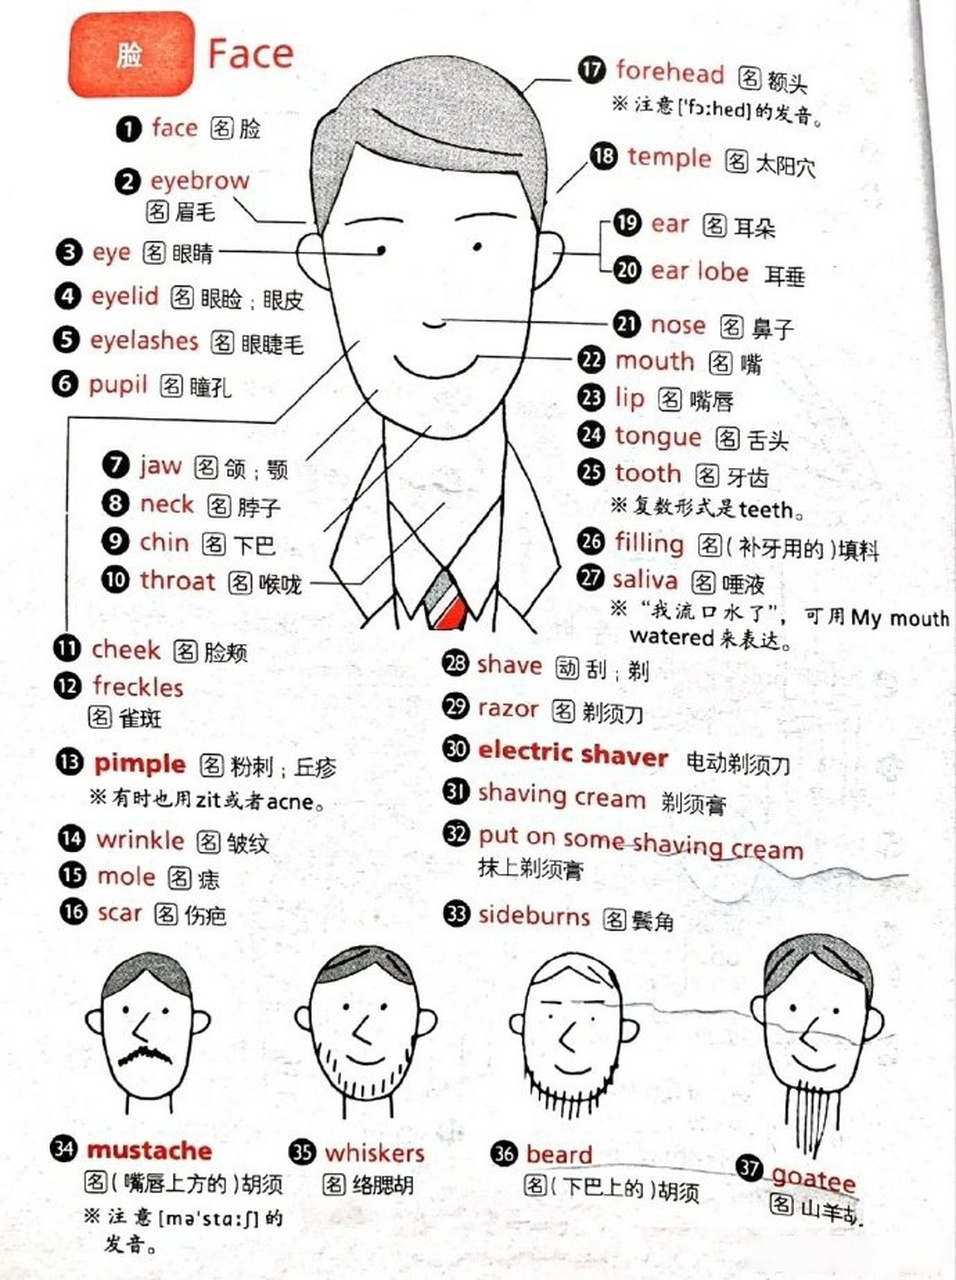 脸 Face
1 face 名 脸
2 eyebrow
名 眉毛
3 eye 名 眼睛
4 eyelid 名 眼睑；眼皮
5 eyelashes 名 眼睫毛
6 pupil 名 瞳孔
7 jaw 名 颌；颚
8 neck 名 脖子
9 chin 名 下巴
10 throat 名 喉咙
11 cheek 名 脸颊
12 freckles
名 雀斑
13 pimple 名 粉刺；丘疹
※有时也用zit或者acne。
14 wrinkle 名 皱纹
15 mole 名 痣
16 scar 名 伤疤
17 forehead 名 额头
※注意['fɔ:hed]的发音。
18 temple 名 太阳穴
19 ear 名 耳朵
20 ear lobe 耳垂
21 nose 名 鼻子
22 mouth 名 嘴
23 lip 名 嘴唇
24 tongue 名 舌头
25 tooth 名 牙齿
※复数形式是teeth。
26 filling 名(补牙用的)填料
27 saliva 名 唾液
※“我流口水了”，可用My mouth
watered来表达。
28 shave 动 刮；剃
29 razor 名 剃须刀
30 electric shaver 电动剃须刀
31 shaving cream 剃须膏
32 put on some shaving cream
抹上剃须膏
33 sideburns 名 鬓角
34 mustache
名(嘴唇上方的)胡须
※注意[mə'stɑ:ʃ]的
发音。
35 whiskers
名 络腮胡
36 beard
名(下巴上的)胡须
37 goatee
名 山羊胡